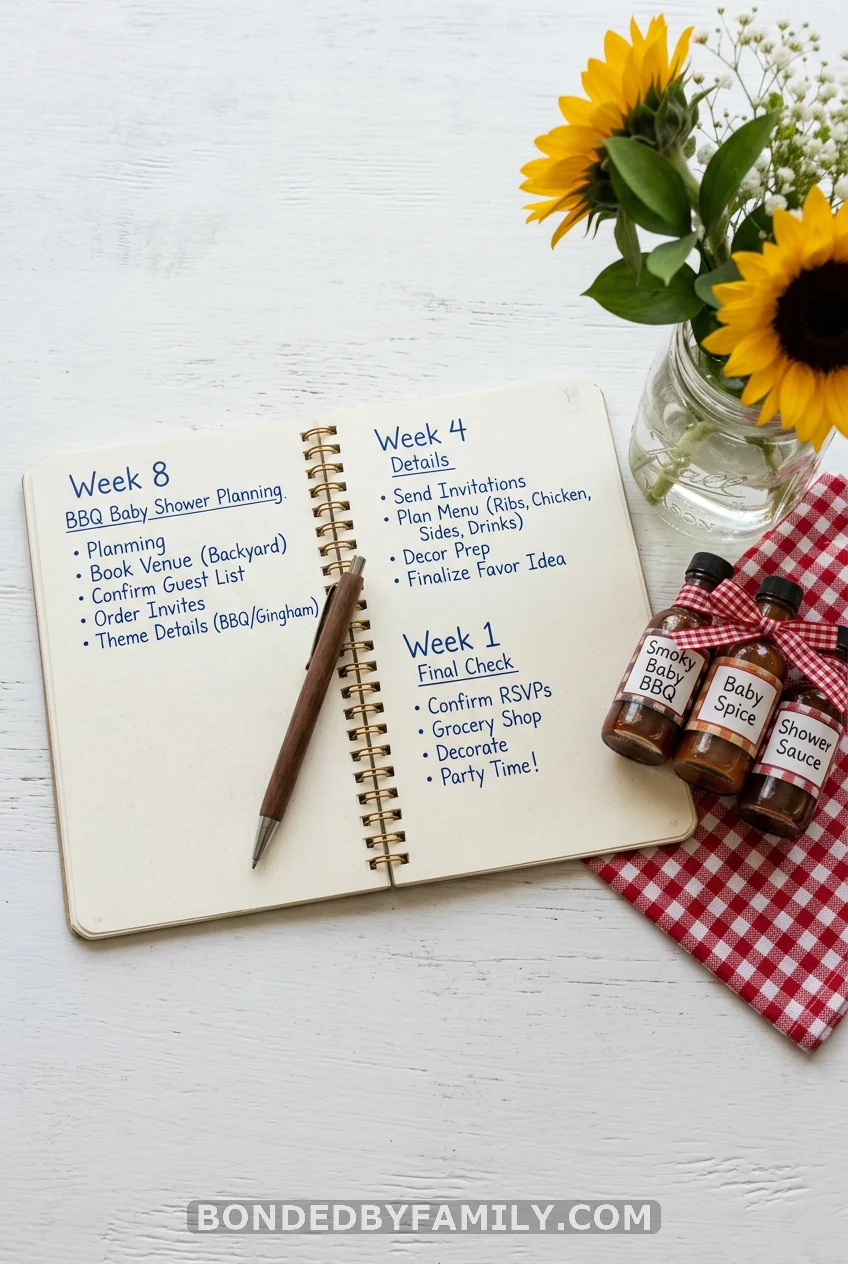 Week 8
BBQ Baby Shower Planning.
• Planning
• Book Venue (Backyard)
• Confirm Guest List
• Order Invites
• Theme Details (BBQ/Gingham)
Week 4
Details
• Send Invitations
• Plan Menu (Ribs, Chicken,
Sides, Drinks)
• Decor Prep
• Finalize Favor Idea
Week 1
Final Check
• Confirm RSVPs
• Grocery Shop
• Decorate
• Party Time!
Smoky
Baby
BBQ
Baby
Spice
Shower
Sauce
BONDEDBYFAMILY.COM